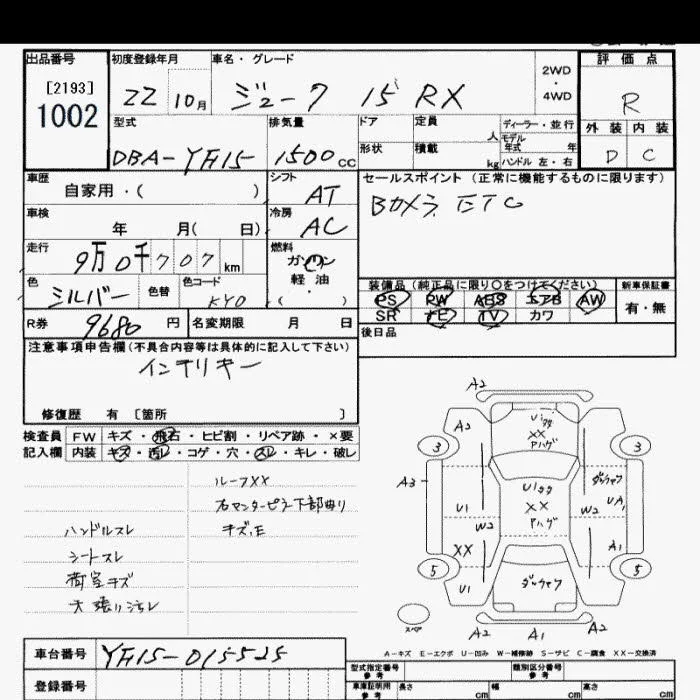 出品番号
[2193]
1002
初度登録年月
22 10月
車名・グレード
ジューク 15 RX
2WD
・
4WD
評価点
R
外装 内装
D C
型式
DBA-YF15
排気量
1500cc
ドア
形状
定員
人
積載
kg
ディーラー・並行
モデル
年式 年
ハンドル 左・右
車歴
自家用・( )
シフト
AT
セールスポイント (正常に機能するものに限ります)
Bカメラ ETC
車検
年 月( 日)
冷房
AC
走行
9万0千707km
燃料
ガソリン
軽油
・
( )
色
シルバー
色替
色コード
KY0
装備品 (純正品に限り○をつけてください)
PS PW ABS エアB AW
SR ナビ TV カワ
新車保証書
有・無
R券
9680円
名変期限 月 日
後日品
注意事項申告欄(不具合内容等は具体的に記入して下さい)
インテリキー
修復歴 有 [箇所 ]
検査員
記入欄
FW キズ・飛石・ヒビ割・リペア跡・×要
内装 キズ・汚レ・コゲ・穴・スレ・キレ・破レ
ルーフXX
右センターピラ下部曲り
キズ,E
ハンドルスレ
シートスレ
荷室キズ
天張りヨゴレ
A2
A2
A2
3
3
XX
ハゲ
A3
U1
W2
XX
U1
5
XX
ハゲ
W2
A1
5
スペア
A2
A1
A2
A-キズ E-エクボ U-凹み W-補修跡 S-サビ C-腐食 XX-交換済
車台番号
YF15-015525
登録番号
型式指定番号
参考
類別区分番号
参考
車庫証明用
参考
長さ cm
幅 cm
高さ cm